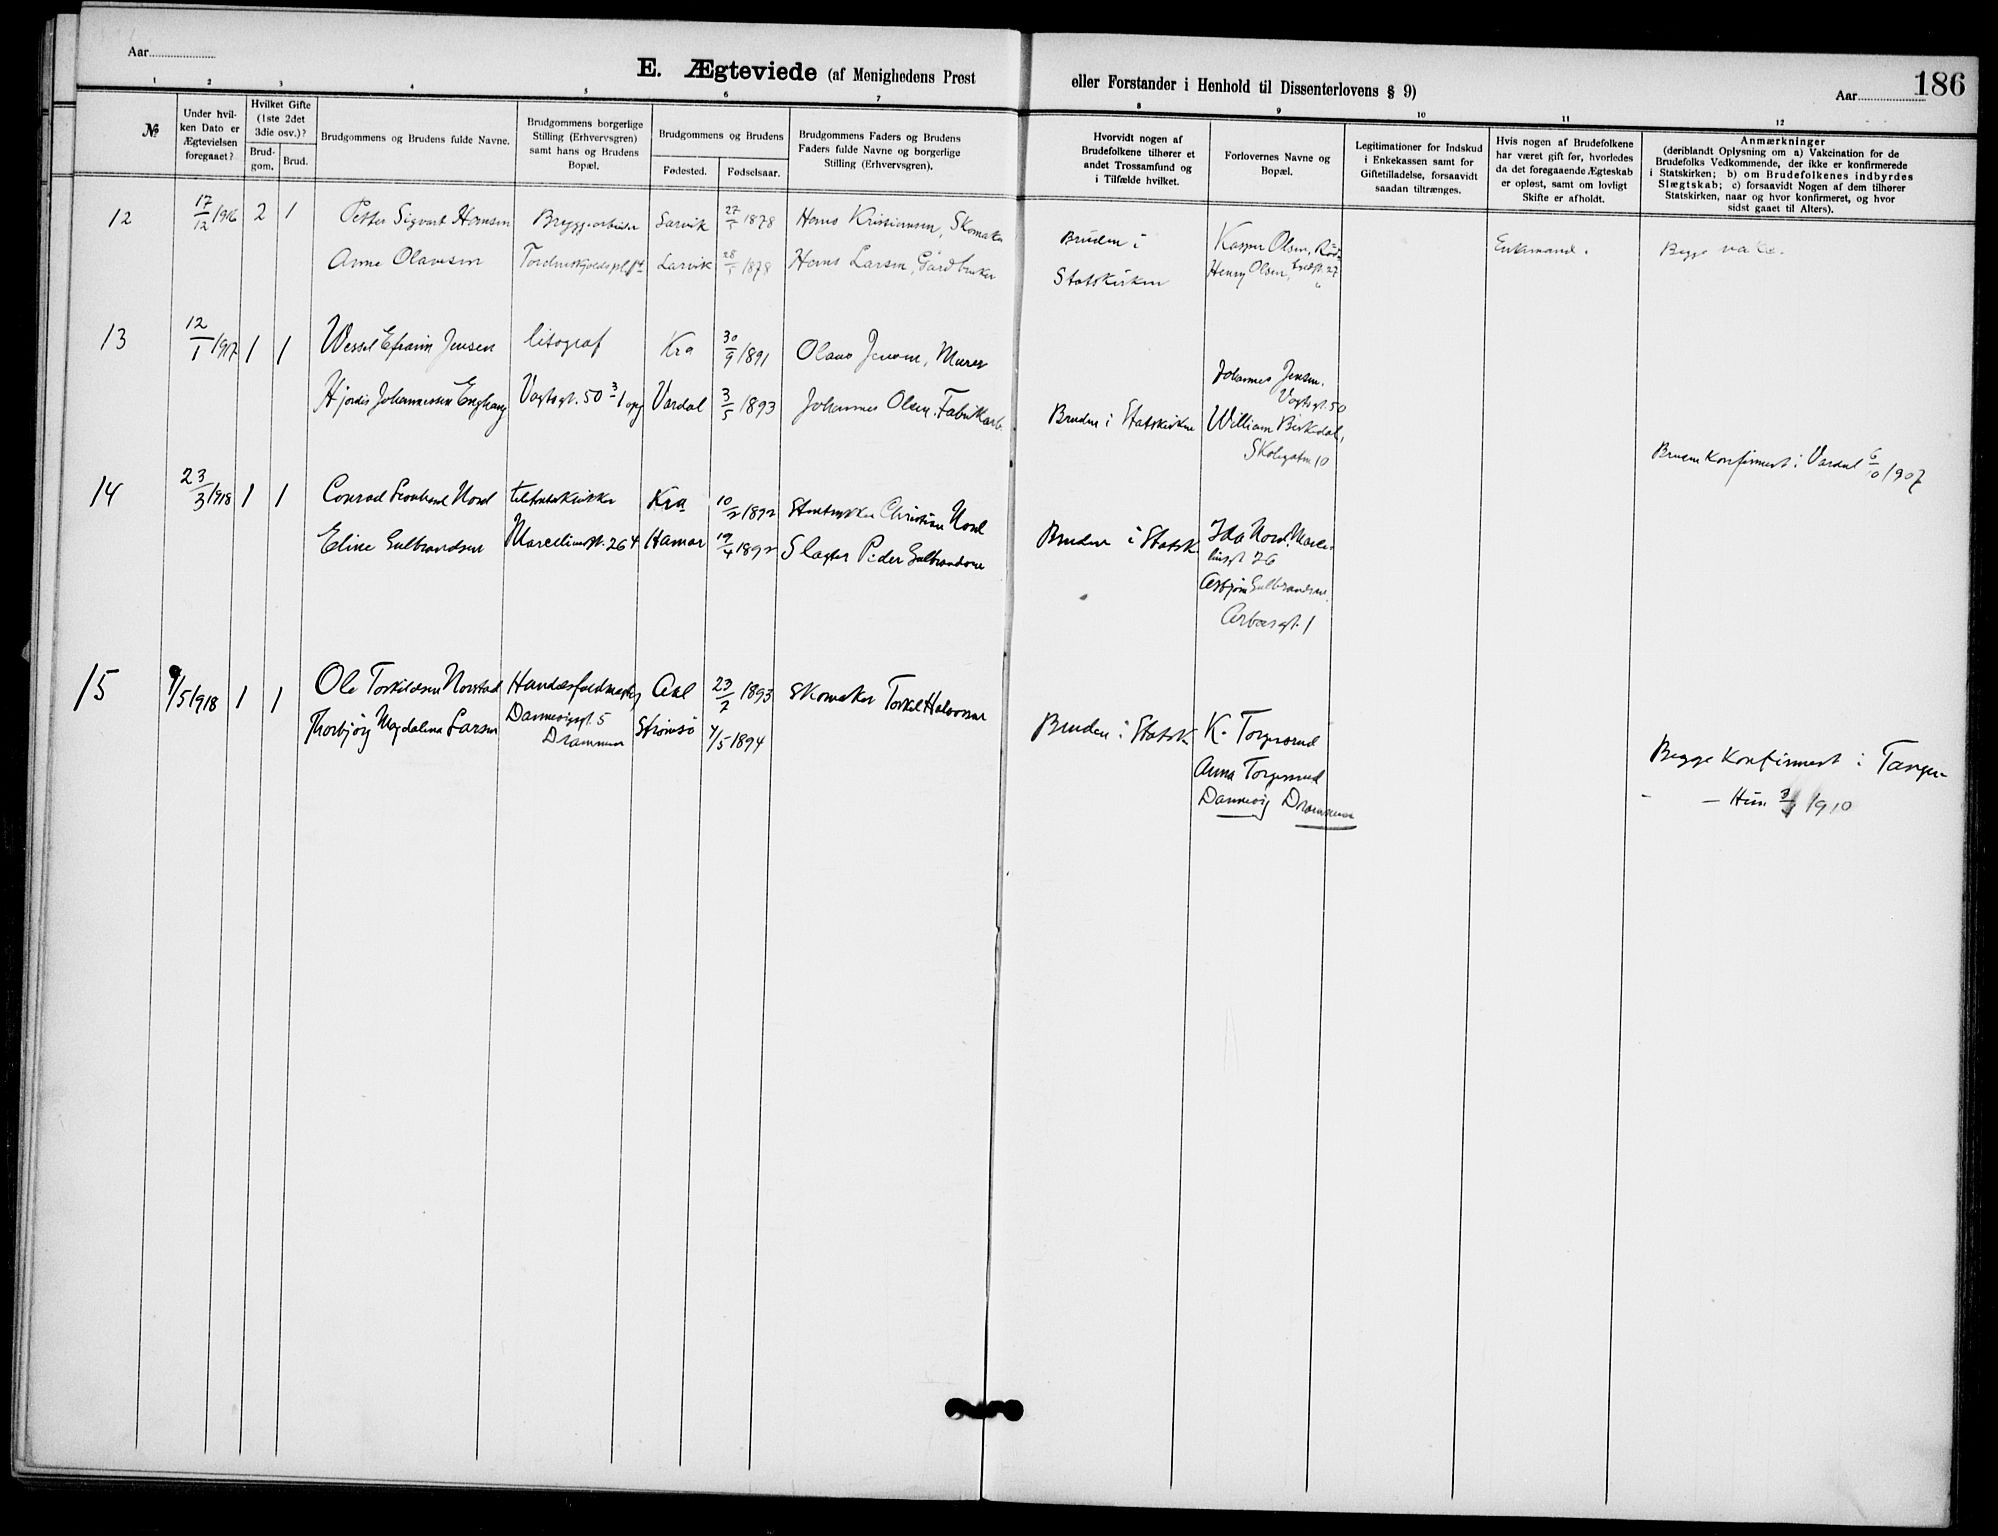 Aar
E. Ægteviede (af Menighedens Prest
eller Forstander i Henhold til Dissenterlovens § 9)
Aar
186
1 2 3 4 5 6 7 8 9 10 11 12
№
Under hvil-
ken Dato er
Ægtevielsen
foregaaet?
Hvilket Gifte
(1ste 2det
3die osv.)?
Brud-
gom.
Brud.
Brudgommens og Brudens fulde Navne.
Brudgommens borgerlige
Stilling (Erhvervsgren)
samt hans og Brudens
Bopæl.
Brudgommens og Brudens
Fødested.
Fødselsaar.
Brudgommens Faders og Brudens
Faders fulde Navne og borgerlige
Stilling (Erhvervsgren).
Hvorvidt nogen af
Brudefolkene tilhører et
andet Trossamfund og
i Tilfælde hvilket.
Forlovernes Navne og
Bopæl.
Legitimationer for Indskud
i Enkekassen samt for
Giftetilladelse, forsaavidt
saadan tiltrænges.
Hvis nogen af Brudefolkene
har været gift før, hvorledes
da det foregaaende Ægteskab
er opløst, samt om lovligt
Skifte er afholdt.
Anmærkninger
(deriblandt Oplysning om a) Vakcination for de
Brudefolks Vedkommende, der ikke er konfirmerede
i Statskirken; b) om Brudefolkenes indbyrdes
Slægtskab; c) forsaavidt Nogen af dem tilhører
Statskirken, naar og hvor konfirmeret, og hvor
sidst gaaet til Alters).
12 17/12 1916 2 1 Petter Sigvart Hansen Bryggearbeider Larvik 27/5 1878 Hans Kristiansen, Skomaker
Anna Olavesen Larvik 28/ 1878 Hans Larsen, Gårdbruker
Bruden i
Statskirken
Kasper Olsen,
Henry Olsen,
Enkemand.
Begge vakc.
13 12/1 1917 1 1 Wessel Efraim Jensen litograf Kra 30/9 1891 Olaus Jensen, Murer
Hjørdis Johannessen Enghaug Vogtsgt. 50 Vardal 3/5 1893 Johannes Olsen, Fabrikarb.
Bruden i Statskirken
Johannes Jensen.
Vogtsgt. 50
William Birkedal,
Skolegaten 10
Bruden konfirmert i Vardal 6/10 1907
14 23/3 1918 1 1 Conrad Nord Kra 10/2 1892 Stentrykker Christian Nord
Eline Gulbrandsen Hamar 19/4 1892 Slagter Peder Gulbrandsen
Bruden i Statsk.
Ida Nord, Marce-
linsgt 26
Asbjørn Gulbrandsen,
15 /5 1918 1 1 Ole Torkildsen Norstad Aal 23/2 1893 Skomaker Torkel Halvorsen
Thorbjørg Magdalena Larsen Dannevigsgt. 5
Drammen
Strømsø 4/5 1894
Bruden i Statsk
K. Torgersrud
Anna Torgersrud
Dannevig Drammen
Begge konfirmert i Tangen
1910